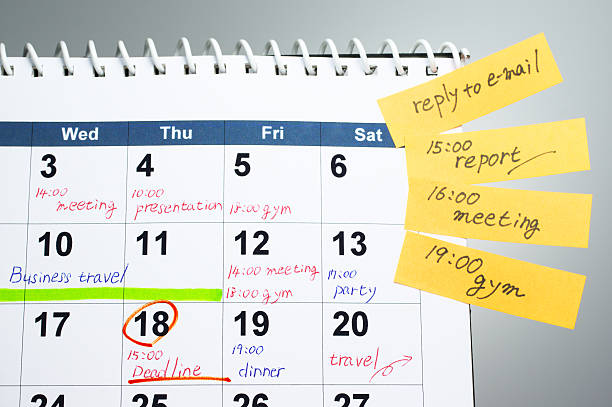 Wed Thu Fri Sat
3 4 5 6
14:00 meeting
10:00 presentation
18:00 gym
10 11 12 13
Business travel
14:00 meeting
18:00 gym
17:00 party
17 18 19 20
15:00 Deadline
19:00 dinner
travel
24 25 26 27
reply to e-mail
15:00
report
16:00
meeting
19:00
gym